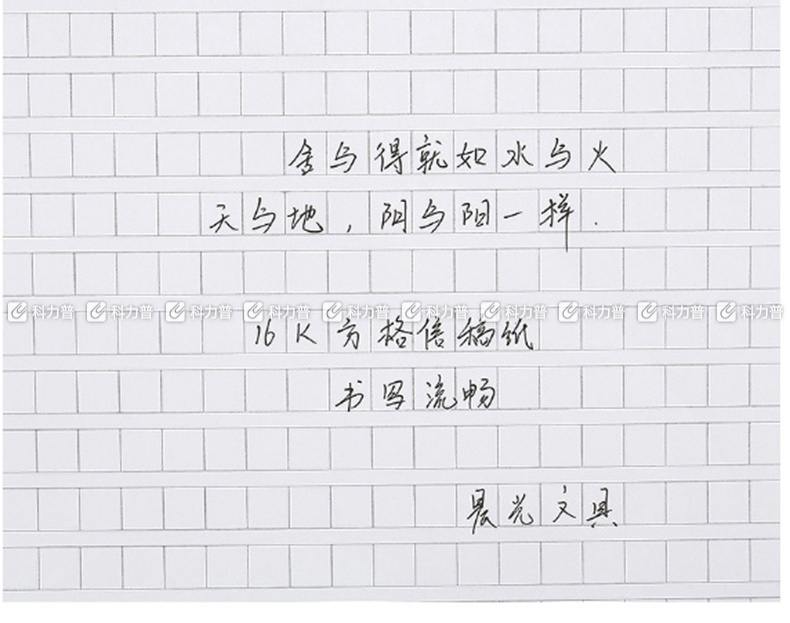 舍与得就如水与火
天与地，阴与阳一样.
科力普 科力普 科力普 科力普 科力普 科力普 科力普 科力普 科力普 科力普
16K方格信稿纸
书写流畅
晨光文具